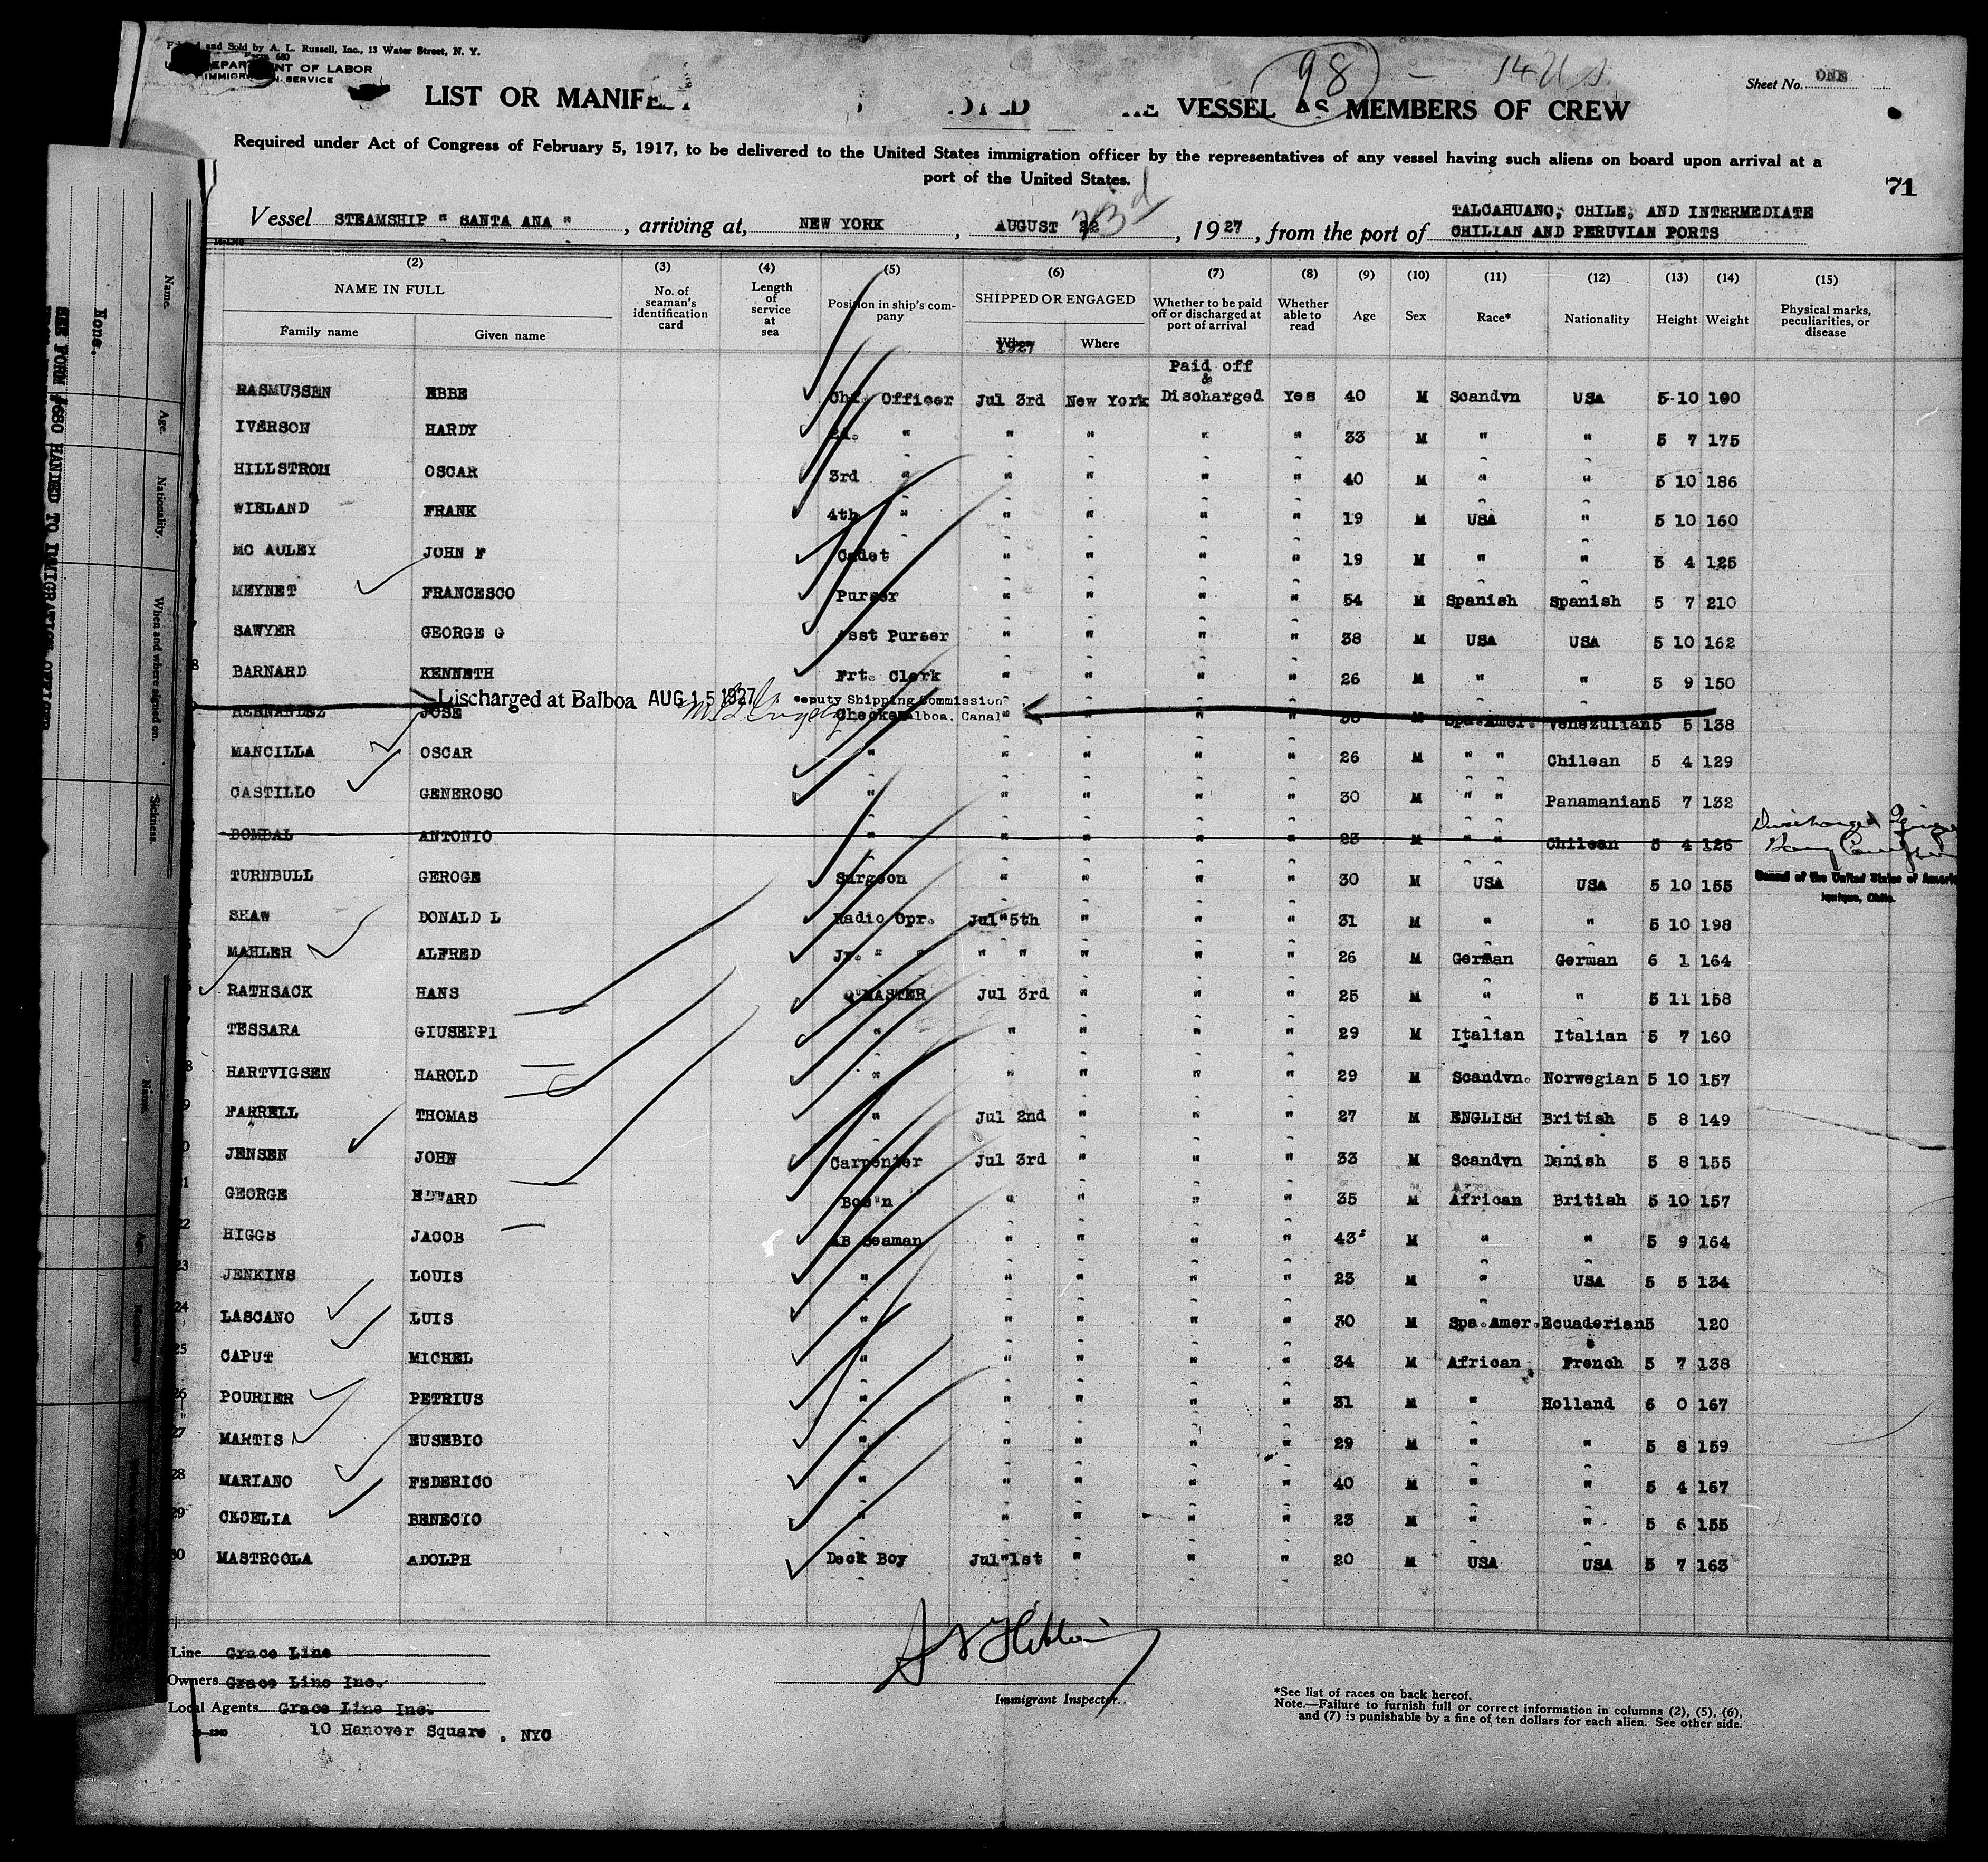 and Sold by A. L. Russell, Inc., 13 Water Street, N. Y.
680
OF LABOR
SERVICE
98 - 14 U S.
Sheet No. ONE
LIST OR VESSEL AS MEMBERS OF CREW
Required under Act of Congress of February 5, 1917, to be delivered to the United States immigration officer by the representatives of any vessel having such aliens on board upon arrival at a
port of the United States.
71
Vessel STEAMSHIP " SANTA ANA ", arriving at, NEW YORK, AUGUST 22 23d, 1927, from the port of TALCAHUANO, CHILE, AND INTERMEDIATE
CHILIAN AND PERUVIAN PORTS
(2) (3) (4) (5) (6) (7) (8) (9) (10) (11) (12) (13) (14) (15)
NAME IN FULL No. of seaman's identification card Length of service at sea Position in ship's company SHIPPED OR ENGAGED Whether to be paid off or discharged at port of arrival Whether able to read Age Sex Race* Nationality Height Weight Physical marks, peculiarities, or disease
Family name Given name When 1927 Where
Paid off
&
RASMUSSEN EBBE Chf. Officer Jul 3rd New York Discharged Yes 40 M Scandvn USA 5 10 190
IVERSON HARDY 2d. " " " " " 33 M " " 5 7 175
HILLSTROM OSCAR 3rd " " " " " 40 M " " 5 10 186
WIELAND FRANK 4th " " " " " 19 M USA " 5 10 160
MC AULEY JOHN F Cadet " " " " 19 M " " 5 4 125
MEYNET FRANCESCO Purser " " " " 54 M Spanish Spanish 5 7 210
SAWYER GEORGE G Asst Purser " " " " 38 M USA USA 5 10 162
8 BARNARD KENNETH Frt. Clerk " " " " 26 M " " 5 9 150
Discharged at Balboa AUG 15 1927 Deputy Shipping Commission
Balboa. Canal
HERNANDEZ JOSE Checker " " " " M Spa.Amer. Venezulian 5 5 138
MANCILLA OSCAR " " " " " 26 M " " Chilean 5 4 129
CASTILLO GENEROSO " " " " " 30 M " " Panamanian 5 7 132
BOMBAL ANTONIO " " " " " 23 M " " Chilean 5 4 126 Discharged
TURNBULL GEROGE Surgeon " " " " 30 M USA USA 5 10 155
Consul of the United States of Americ
Iquique, Chile.
SHAW DONALD L Radio Opr. Jul 5th " " " 31 M " " 5 10 198
MAHLER ALFRED Jr. " " " " " " " 26 M German German 6 1 164
RATHSACK HANS Q'MASTER Jul 3rd " " " 25 M " " 5 11 158
TESSARA GIUSEPPI " " " " " 29 M Italian Italian 5 7 160
8 HARTVIGSEN HAROLD " " " " " 29 M Scandvn. Norwegian 5 10 157
9 FARRELL THOMAS " Jul 2nd " " " 27 M ENGLISH British 5 8 149
0 JENSEN JOHN Carpenter Jul 3rd " " " 33 M Scandvn Danish 5 8 155
1 GEORGE EDWARD Bos'n " " " " 35 M African British 5 10 157
22 HIGGS JACOB AB Seaman " " " " 43 M " " 5 9 164
23 JENKINS LOUIS " " " " " 23 M " USA 5 5 134
24 LASCANO LUIS " " " " " 30 M Spa.Amer. Ecuaderian 5 120
25 CAPUT MICHEL " " " " " 34 M African French 5 7 138
26 POURIER PETRIUS " " " " " 31 M " Holland 6 0 167
27 MARTIS EUSEBIO " " " " " 29 M " " 5 8 159
28 MARIANO FEDERICO " " " " " 40 M " " 5 4 167
29 CECELIA BENECIO " " " " " 23 M " " 5 6 155
30 MASTROOLA ADOLPH Deck Boy Jul 1st " " " 20 M USA USA 5 7 163
Line Grace Line
Owners Grace Line Inc.
Local Agents Grace Line Inc.
10 Hanover Square, NYC
Immigrant Inspector.
*See list of races on back hereof.
Note.—Failure to furnish full or correct information in columns (2), (5), (6),
and (7) is punishable by a fine of ten dollars for each alien. See other side.
Name.
Age.
Nationality.
When and where signed on.
Sickness.
None.
SEE FORM #680 HANDED TO IMIGRATION OFFICER